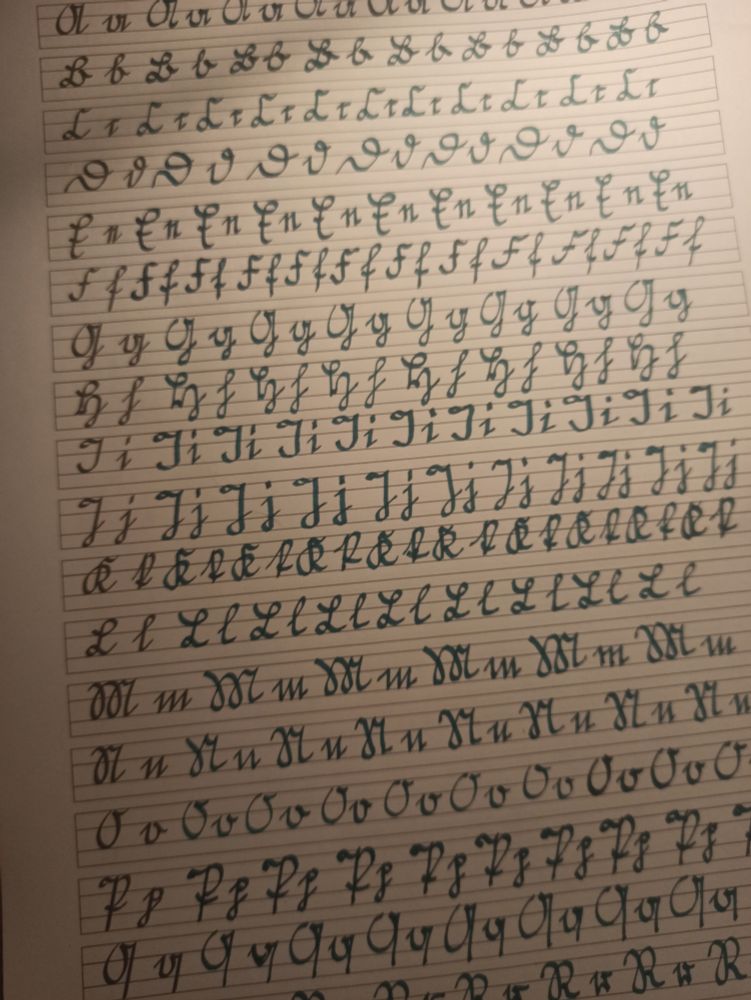 B b B b B b B b B b B b B b B b
C c C c C c C c C c C c C c C c C c C c C c
D d D d D d D d D d D d D d
E e E e E e E e E e E e E e E e E e E e E e
F f F f F f F f F f F f F f F f F f F f F f F f
G g G g G g G g G g G g G g G g
H h H h H h H h H h H h H h H h
I i I i I i I i I i I i I i I i I i I i I i
J j J j J j J j J j J j J j J j J j J j J j
K k K k K k K k K k K k K k K k K k K k
L l L l L l L l L l L l L l L l L l
M m M m M m M m M m M m
N n N n N n N n N n N n N n N n
O o O o O o O o O o O o O o O o O o O
P p P p P p P p P p P p P p P p P p
Q q Q q Q q Q q Q q Q q Q q Q q